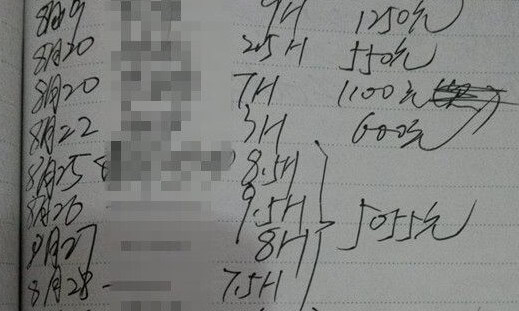 8月19 9H 1250元
8月20 2.5H 550元
8月20 7H 1100元
8月22 3H 600元
8月25 8.5H
8月26 9.5H
8月27 8H 5055元
8月28 7.5H